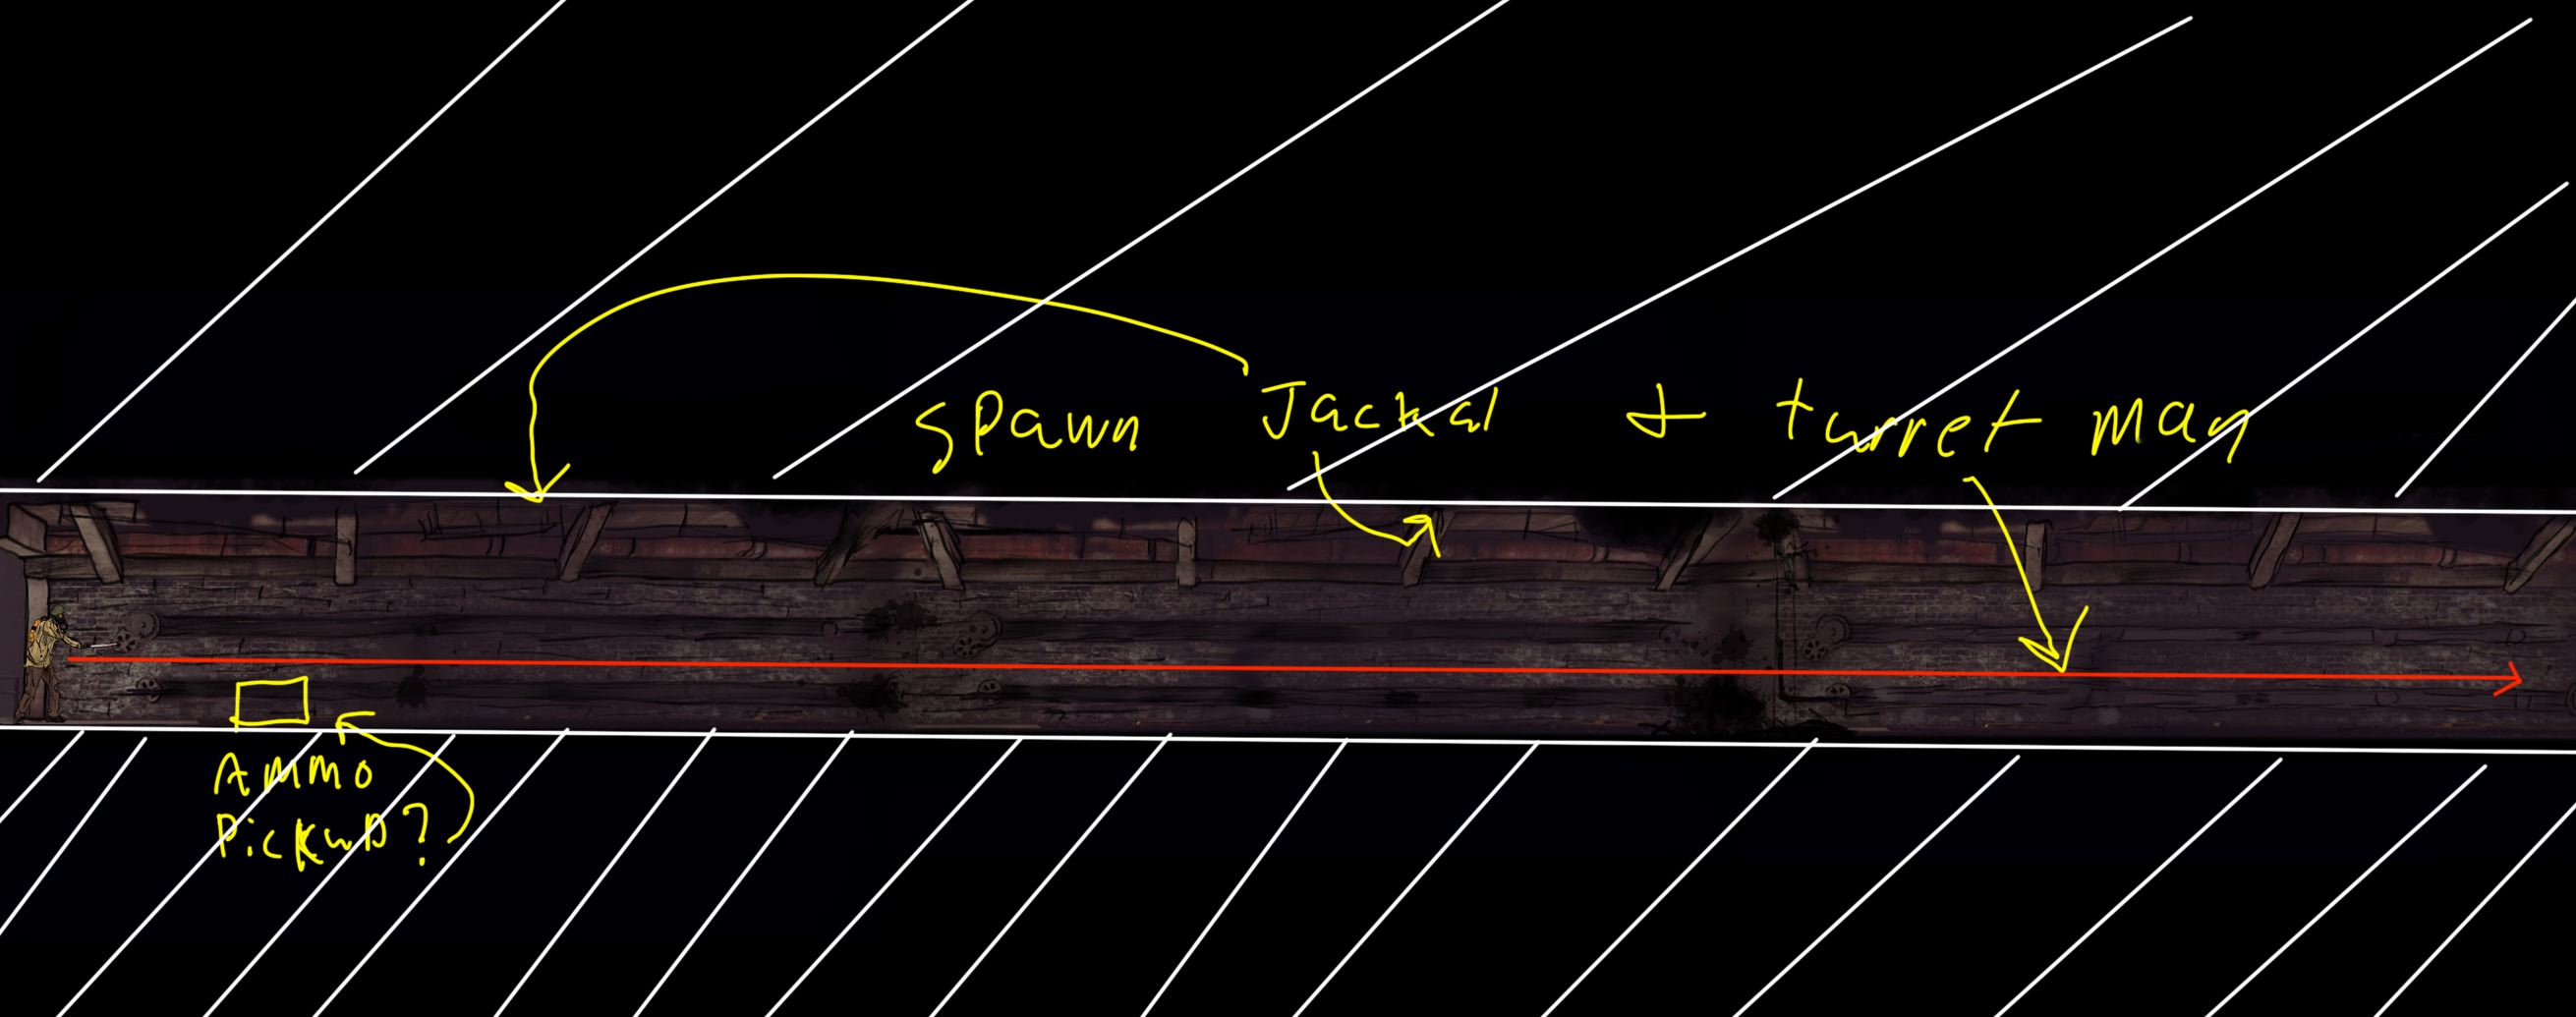 Spawn Jackal + turret man
Ammo
Pickup?